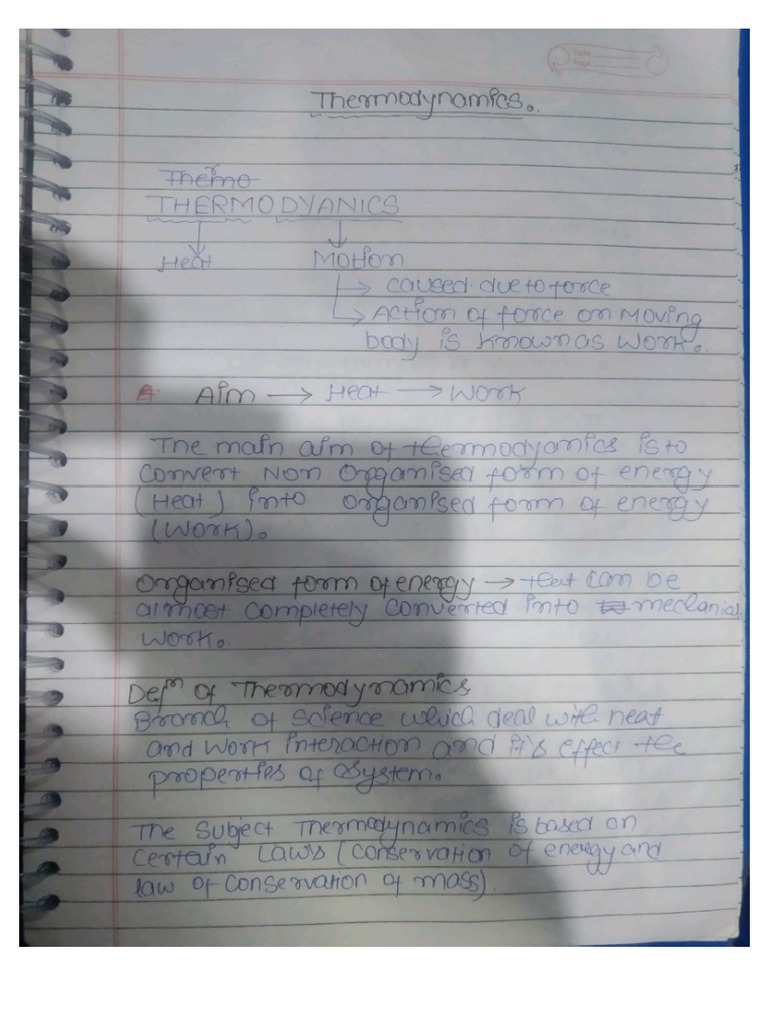 Date
Page
Thermodynamics.
Thermo
THERMODYANICS
Heat Motion
caused due to force
Action of force on Moving
body is known as work.
Aim → Heat → Work
The main aim of thermodyamics is to
convert Non Organised form of energy
(Heat) into organised form of energy
(Work).
Organised form of energy → that can be
almost completely converted into mechanial
work.
Defn of Thermodynamics
Branch of science which deal with heat
and work interaction and it's effect the
properties of system.
The subject Thermodynamics is based on
certain laws (conservation of energy and
law of conservation of mass).